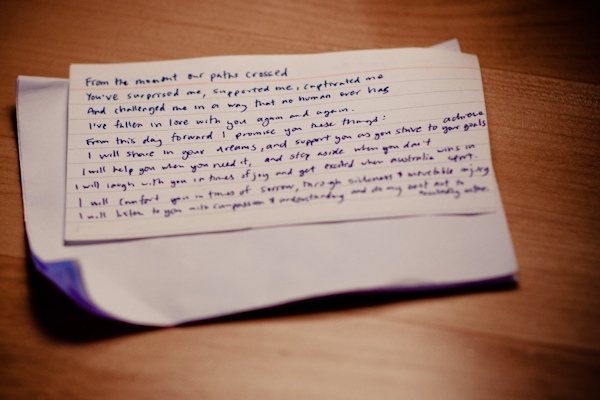 From the moment our paths crossed
You've surprised me, supported me, captivated me
And challenged me in a way that no human ever has
I've fallen in love with you again and again.
From this day forward I promise you these things:
I will share in your dreams, and support you as you strive to achieve your goals
I will help you when you need it, and step aside when you don't
I will laugh with you in times of joy and get excited when australia wins in sport.
I will comfort you in times of sorrow, through sickness & inevitable injury
I will listen to you with compassion & understanding and do my best not to